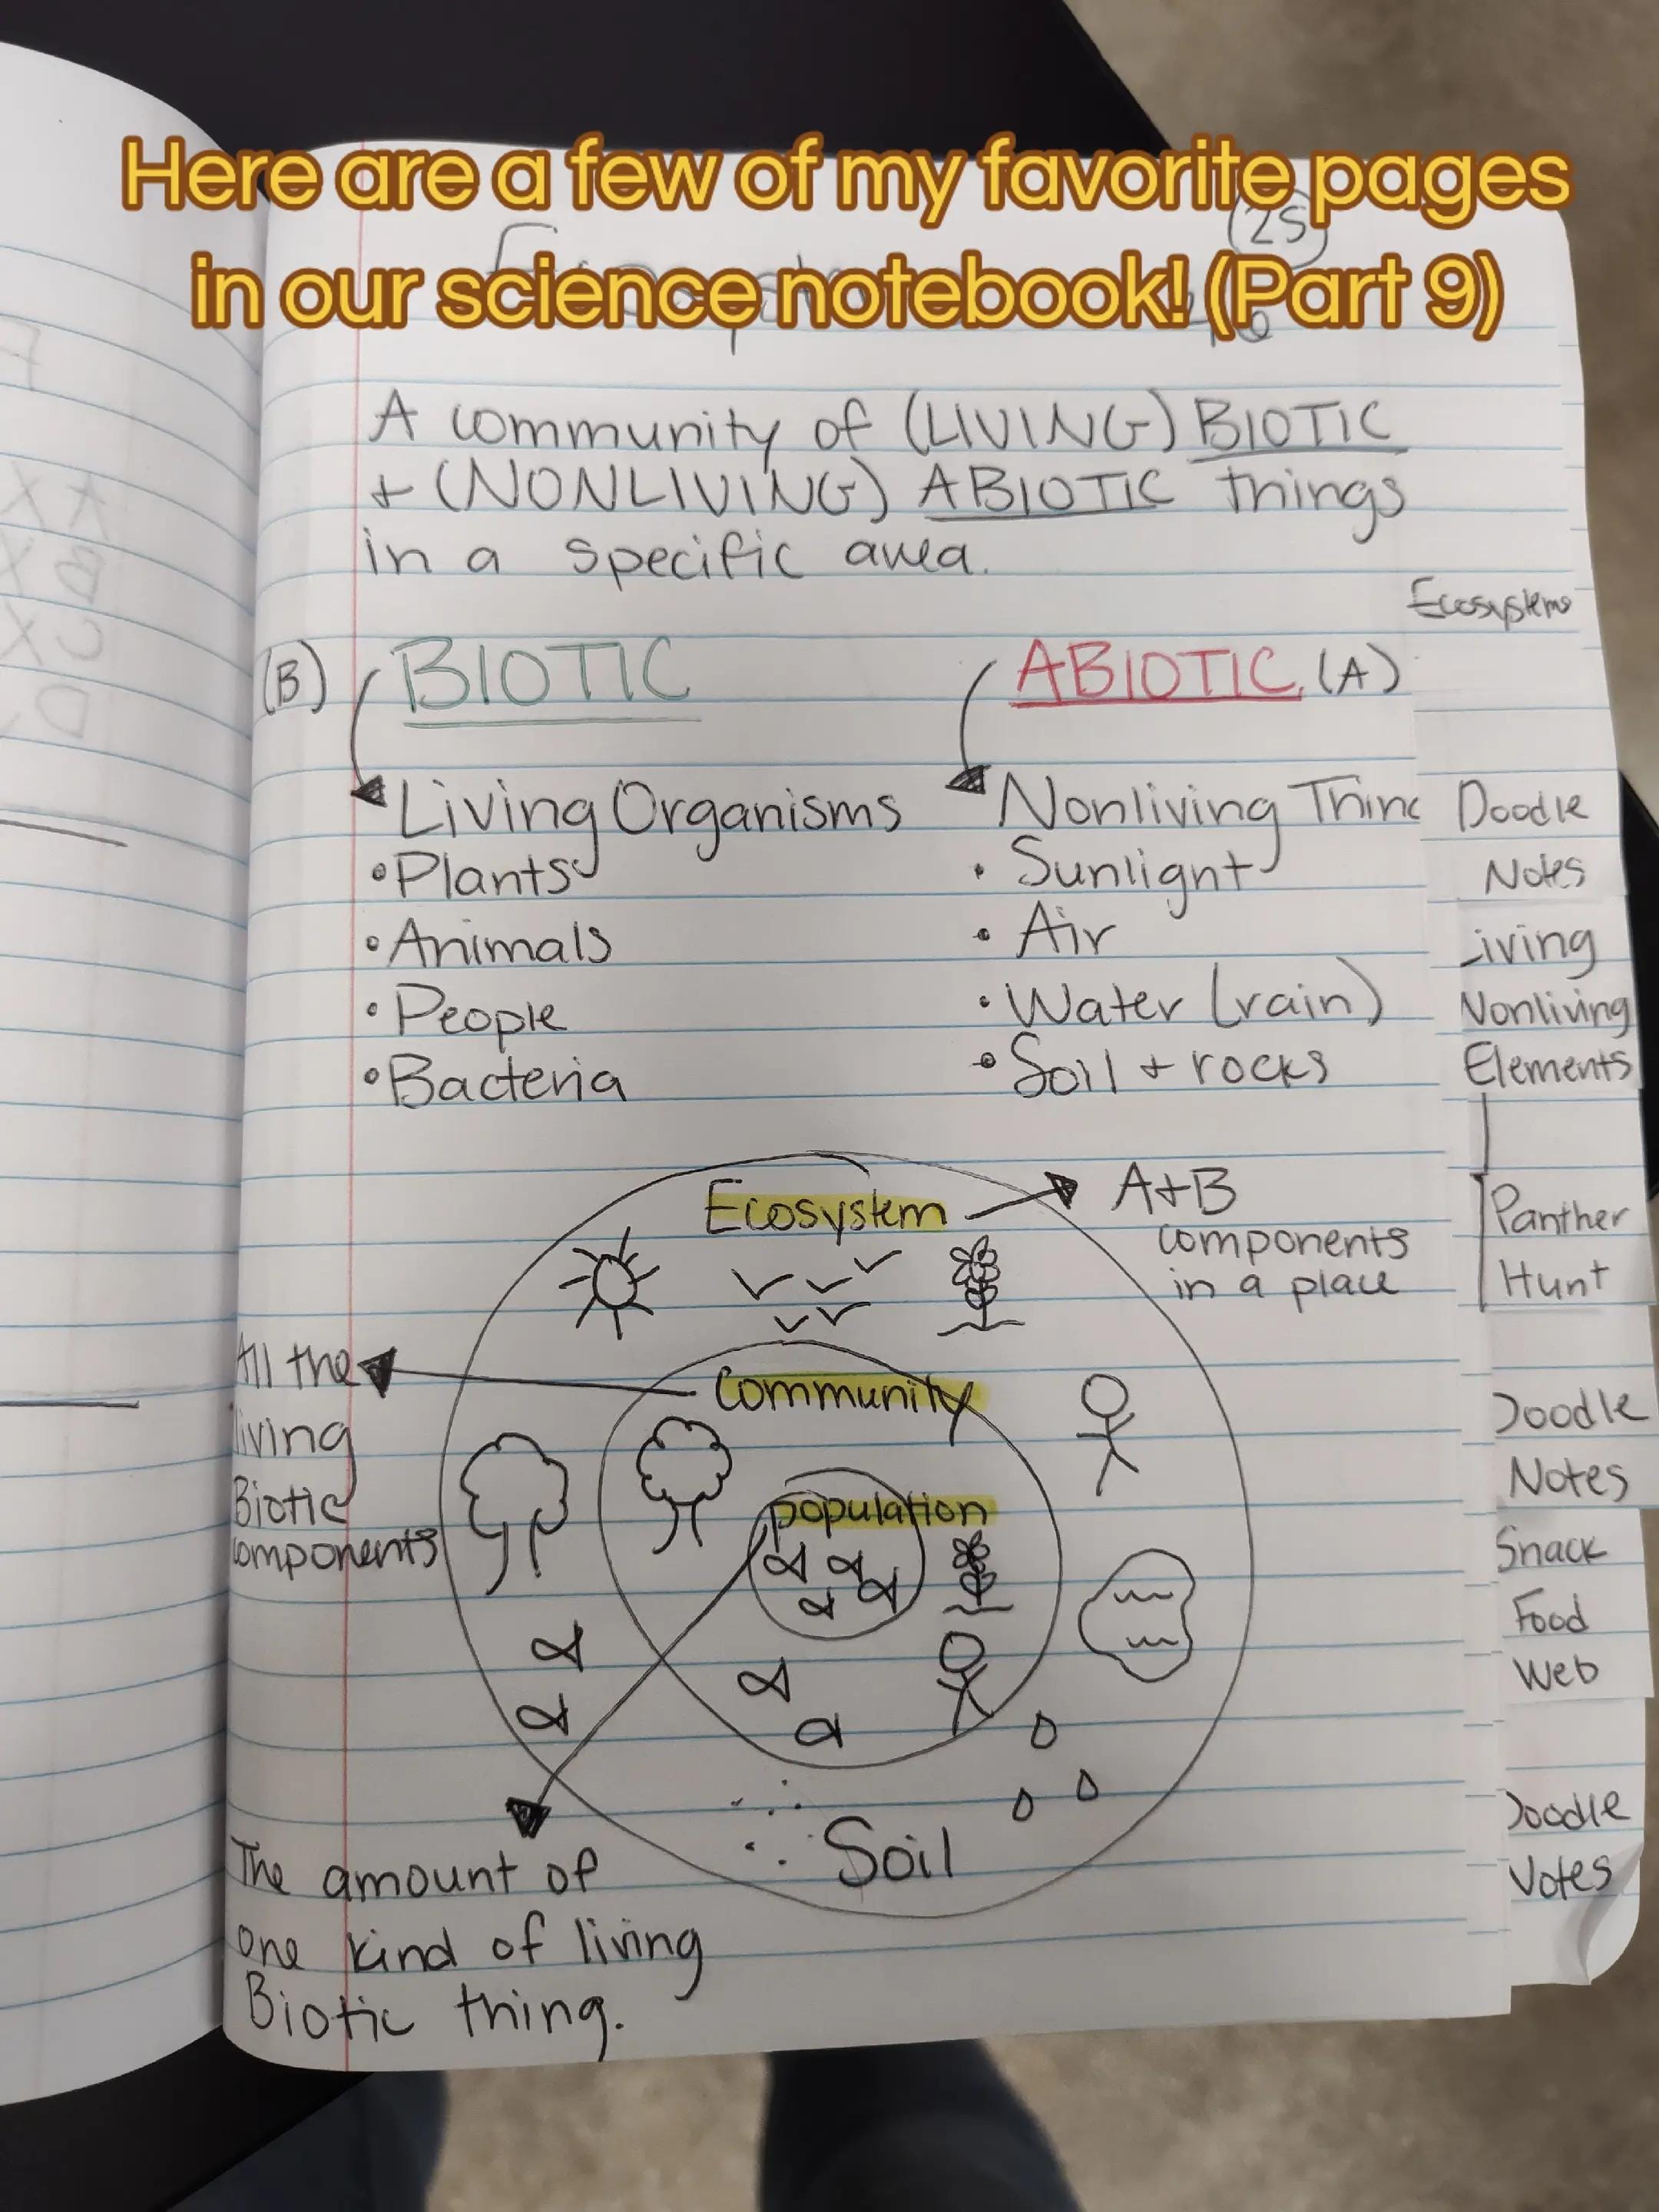 Here are a few of my favorite pages
in our science notebook! (Part 9)
25
A community of (LIVING) BIOTIC
+ (NONLIVING) ABIOTIC things
in a specific area.
Ecosystems
(B) BIOTIC
ABIOTIC (A)
Living Organisms
• Plants
• Animals
• People
• Bacteria
Nonliving Thing
• Sunlight
• Air
• Water (rain)
• Soil + rocks
Ecosystem
A+B
components
in a place
Community
All the
living
Biotic
components
population
Soil
The amount of
one kind of living
Biotic thing.
Doodle
Notes
Living
Nonliving
Elements
Panther
Hunt
Doodle
Notes
Snack
Food
Web
Doodle
Notes